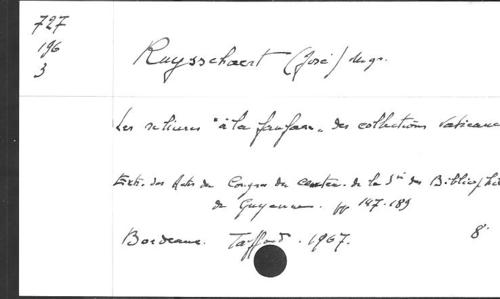 727
196
3
Ruysschaert (José) Mgr.
Les reliures "à la fanfare" des collections Vaticane
Extr. des Actes du Congrès du centen. de la Sté des Bibliophi
de Guyenne. pp 147-189
Bordeaux. Taffard. 1967. 8°